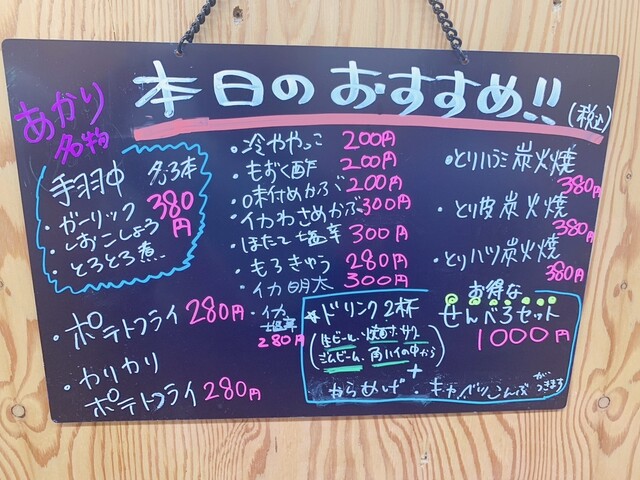 本日のおすすめ!!
(税込)
あかり
名物
手羽中 各3本
・ガーリック
・しおこしょう
・とろとろ煮
380
円
・ポテトフライ 280円
・カリカリ
ポテトフライ 280円
・冷ややっこ 200円
・もずく酢 200円
・味付めかぶ 200円
・イカわさめかぶ 300円
・ほたて塩辛 300円
・もろきゅう 280円
・イカ明太 300円
・イカ
塩辛
280円
・とりハラミ炭火焼
380円
・とり皮炭火焼
380円
・とりハツ炭火焼
380円
お得な
せんべろセット
1000円
★ドリンク2杯
(生ビール、焼酎、サワー
ジムビーム、角ハイの中から)
+
からあげ キャベツこんぶ がつきます